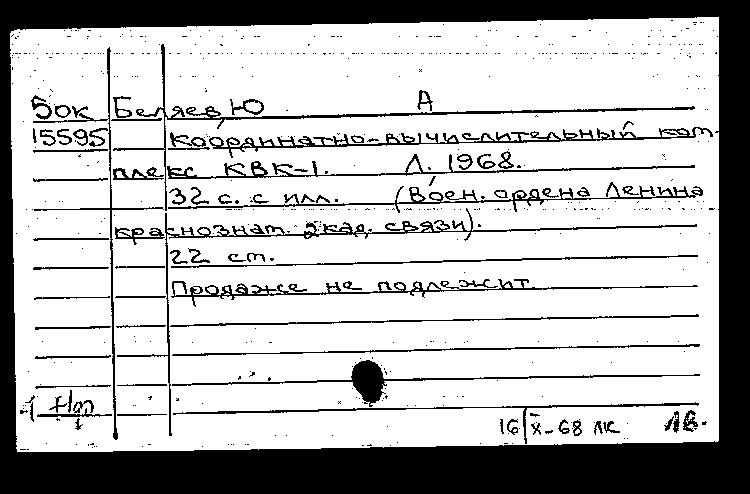 5ок Беляев, Ю А
15595 Координатно-вычислительный ком-
плекс КВК-1. Л. 1968.
32 с. с илл. (Воен. ордена Ленина
краснознам. акад. связи).
22 см.
Продаже не подлежит.
16/X-68 ЛК ЛВ.